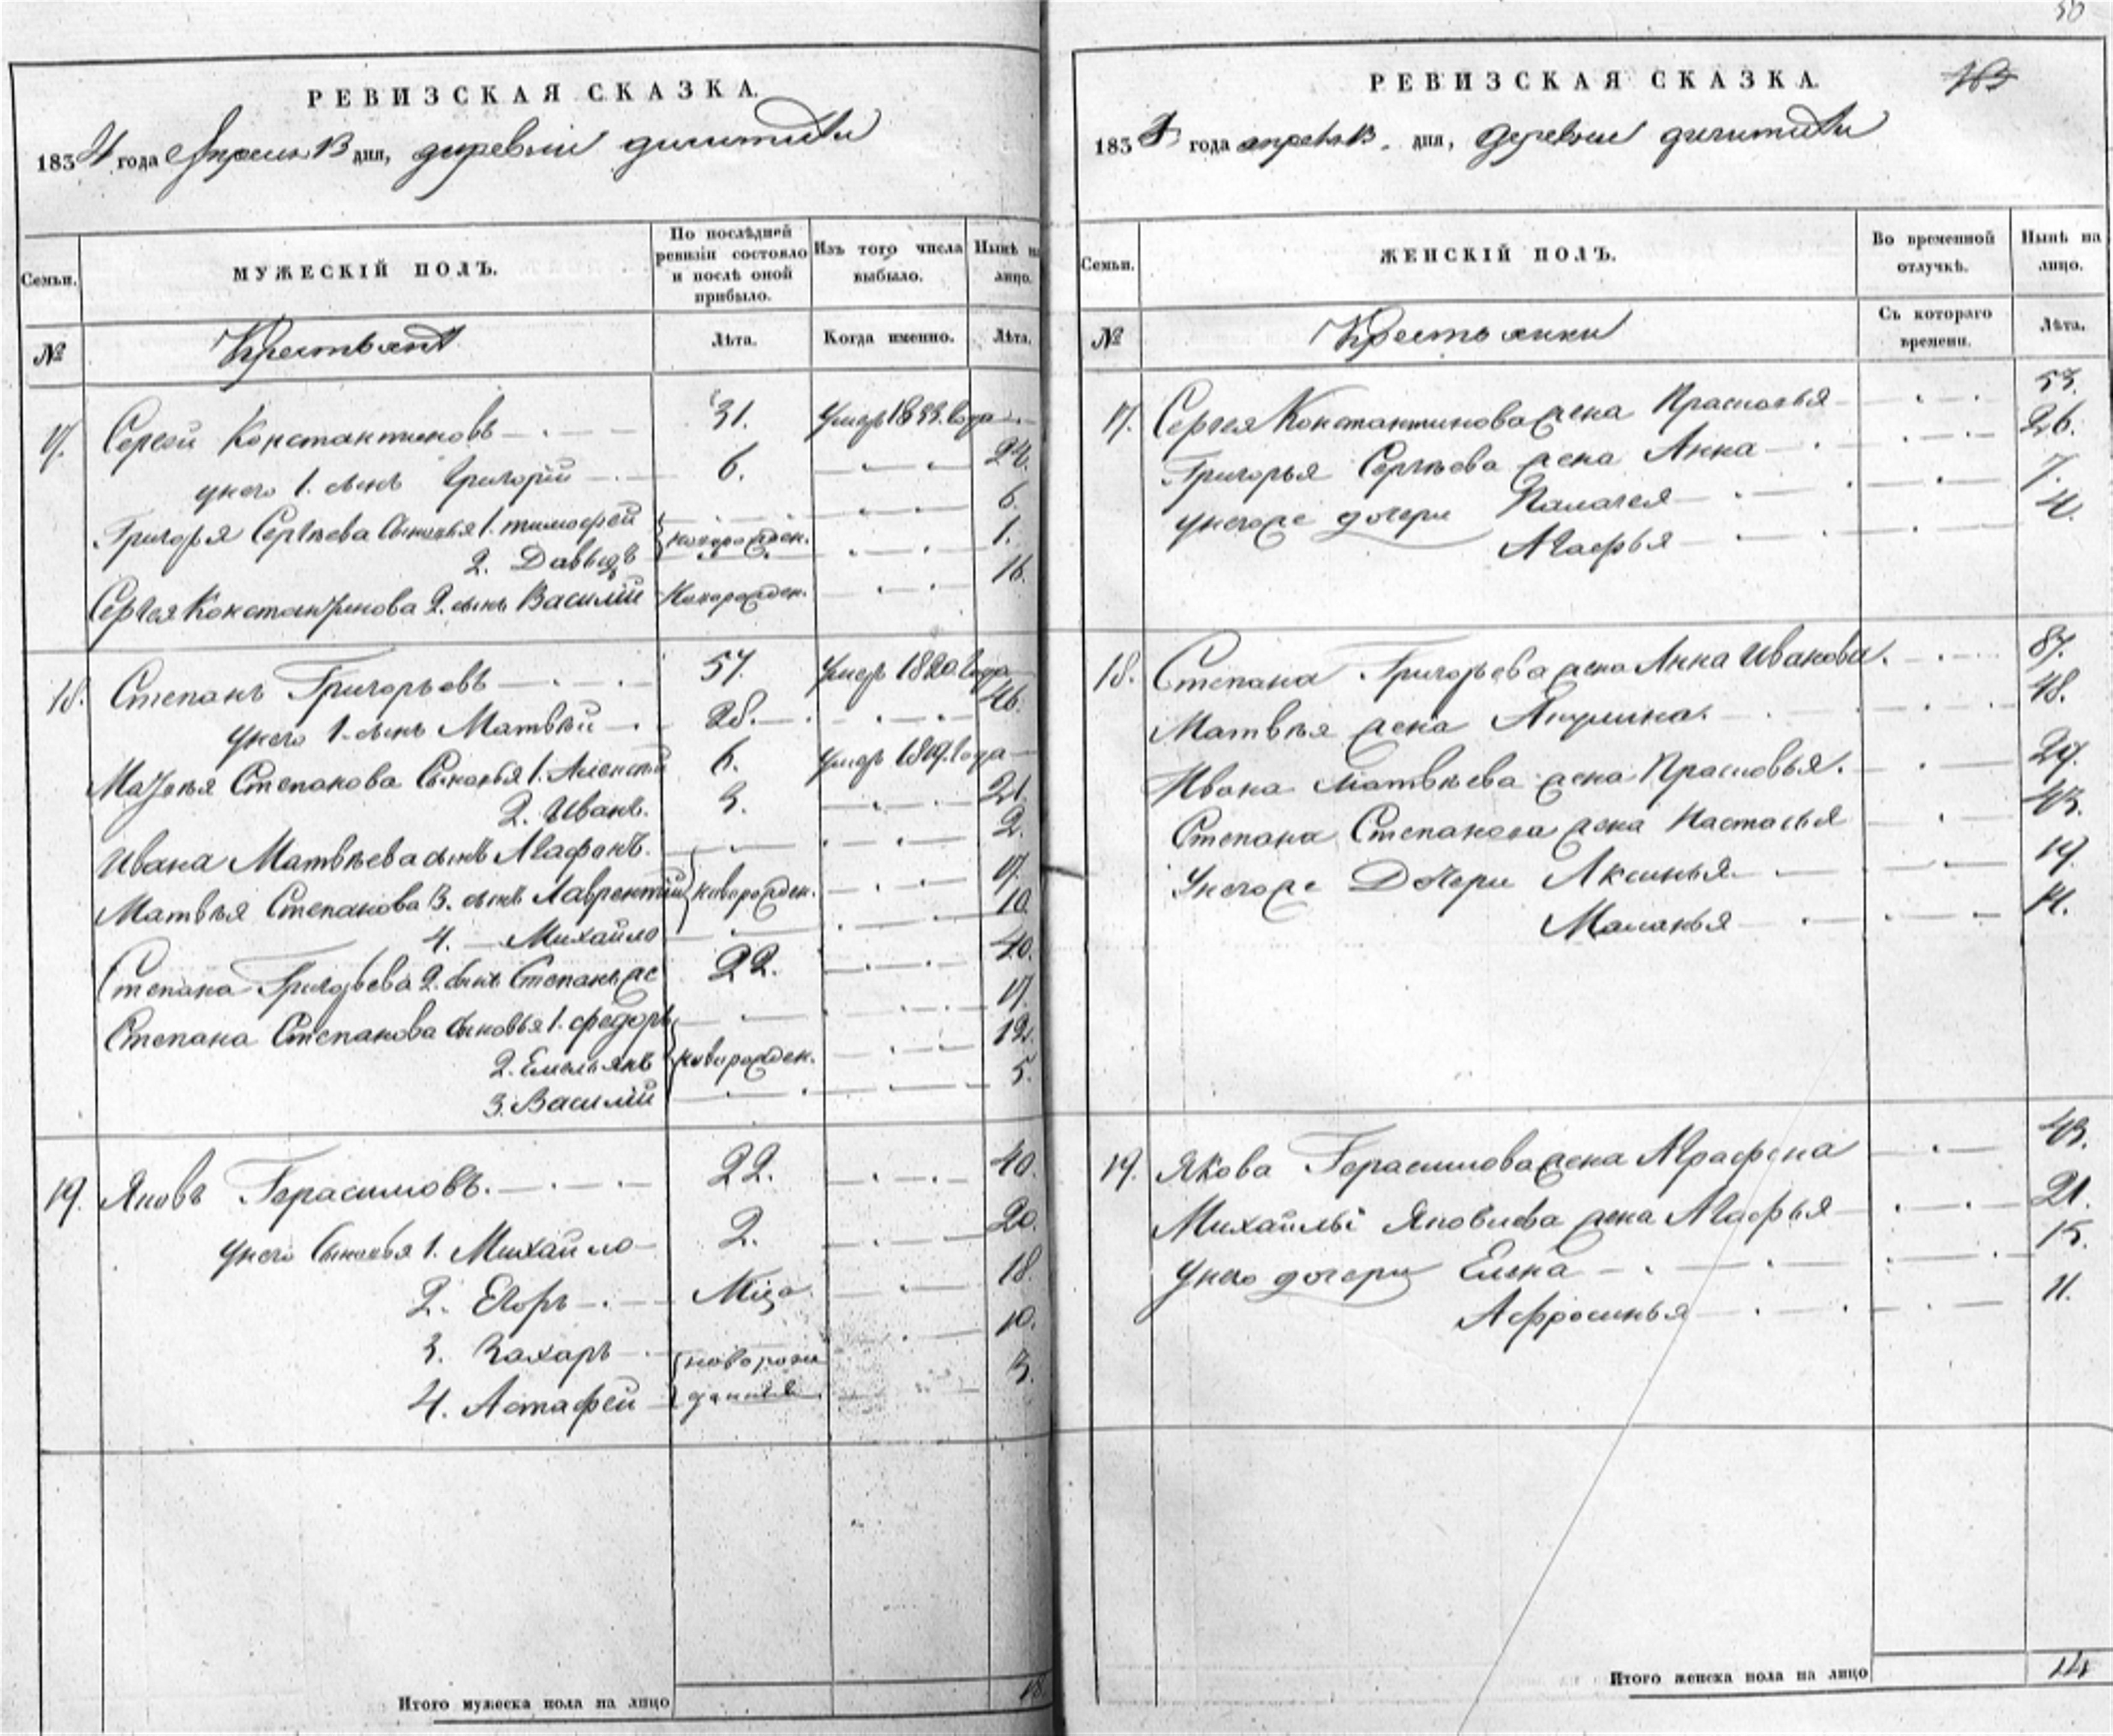 РЕВИЗСКАЯ СКАЗКА.
1834 года Апреля 13 дня, деревни
Семьи.
МУЖЕСКІЙ ПОЛЪ.
По послѣдней ревизіи состояло и послѣ оной прибыло.
Изъ того числа выбыло.
Нынѣ на лицо.
№
Крестьянѣ
Лѣта.
Когда именно.
Лѣта.
17. Сергѣй Константиновъ 31. Умеръ 1833. года
у него 1. сынъ Григорій 6. 24.
Григорья Сергѣева сыновья 1. Тимофей 6.
2. Давыдъ новорожден. 1.
Сергея Константинова 2. сынъ Василій Новорожден. 16.
18. Степанъ Григорьевъ 57. Умеръ 1820 года
у него 1. сынъ Матвѣй 28. 46.
Матвѣя Степанова Сыновья 1. Алексѣй 6. Умеръ 1819. года
2. Иванъ. 3. 21.
Ивана Матвѣева сынъ Агафонъ. 2.
Матвѣя Степанова 3. сынъ Лаврентій новорожден. 17.
4. Михайло 10.
Степана Григорьева 2. сынъ Степанъ же 22. 40.
Степана Степанова сыновья 1. Федоръ 17.
2. Емельянъ новорожден. 12.
3. Василій 5.
19. Яковъ Герасимовъ. 22. 40.
у него Сыновья 1. Михайло 2. 20.
2. Егоръ 18.
3. Захаръ новорож 10.
4. Астафей денныя 3.
Итого мужеска пола на лицо 18.
50
РЕВИЗСКАЯ СКАЗКА.
1834 года апреля 13. дня, Деревни
Семьи.
ЖЕНСКІЙ ПОЛЪ.
Во временной отлучкѣ.
Нынѣ на лицо.
№
Крестьянки
Съ котораго времени.
Лѣта.
17. Сергея Константинова жена Прасковья 53.
Григорья Сергѣева жена Анна 26.
у него же дочери Палагея 7.
Агафья 4.
18. Степана Григорьева жена Анна Иванова. 87.
Матвѣя жена Акулина. 48.
Ивана Матвѣева жена Прасковья. 29.
Степана Степанова жена Настасья 43.
У него же Дочери Аксинья 19.
Маланья 14.
19. Якова Герасимова жена Аграфена 43.
Михайлы Яковлева жена Агафья 21.
У него дочери Елена 15.
Афросинья 11.
Итого женска пола на лицо 14